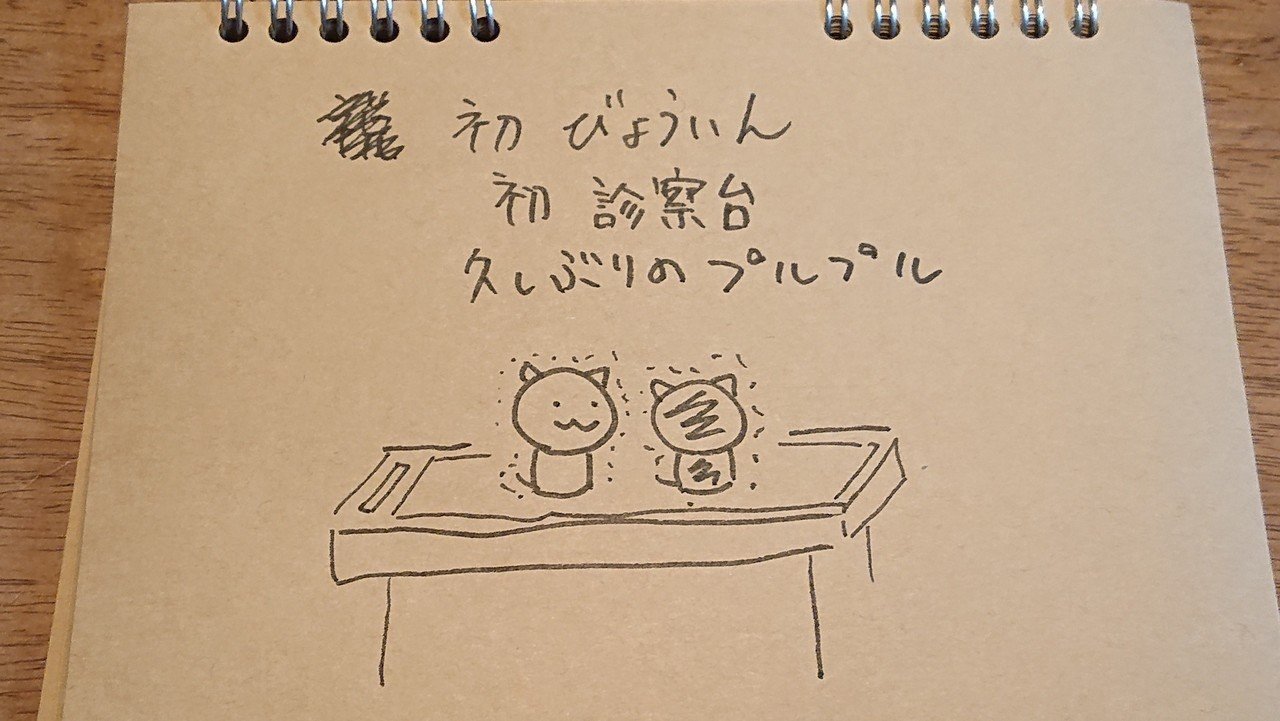 初 びょういん
初 診察台
久しぶりの プルプル